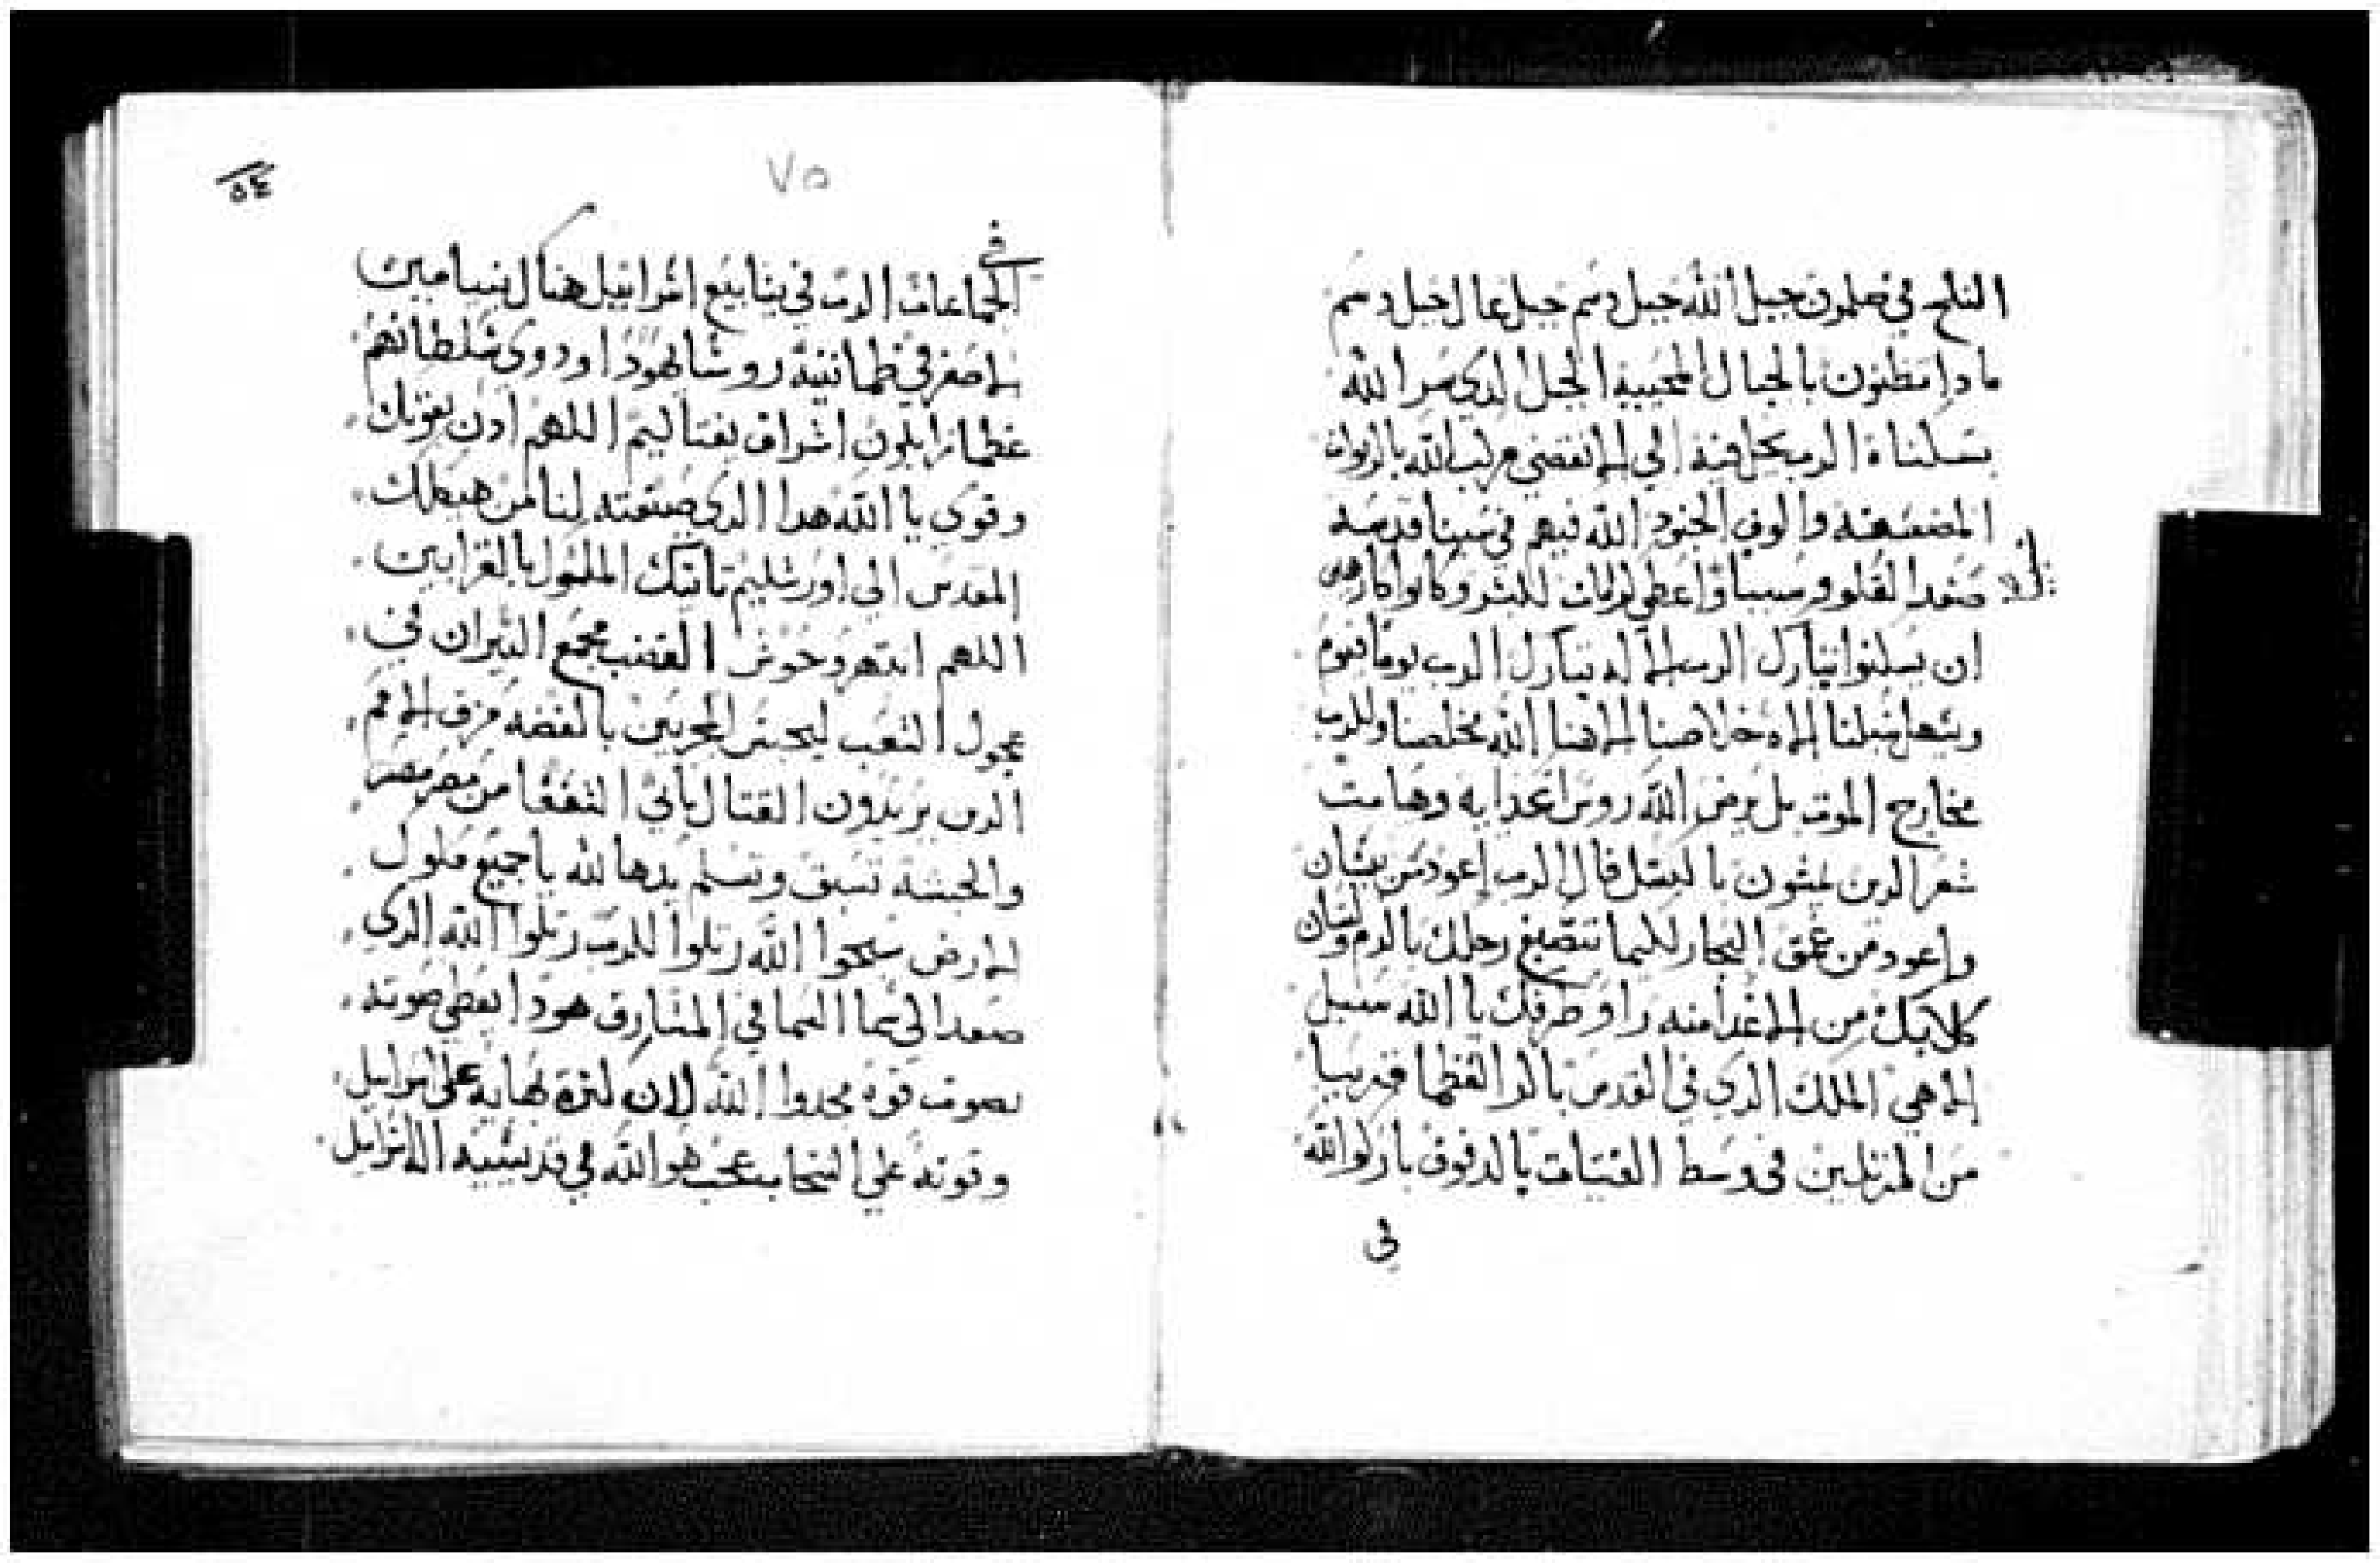 الثلج في صلمون جبل الله جبل دسم جبل عال جبل دسم
ما دا تظنون بالجبال المجبنة الجبل الدي سر الله
يسكناه الرب يحل فيه الي الانقضي مركب الله بالربوات
المضعفه والوف الجنود الله فيهم في سينا قدسه
صعد العلو وسبا سبيا واعطى كرامات للبشر وكانوا كارهين
ان يسكنوا تبارك الرب الاله تبارك الرب يوما فيوم
ويسهل سبلنا الاه خلاصنا الاهنا الله مخلصنا وللرب
مخارج الموت بل يرض الله روس اعدايه وهامت
شعر الدين يمشون بالبسل قال الرب اعود من بيسان
واعود من عمق البحار لكيما تنصبغ رجلك بالدم ولسان
كلابك من الاعدا منه راو طرقك يا الله سبيل
الاهي الملك الدي في القدس بادر العظما قريبا
من المرتلين في وسط الفتيات بالدفوف باركوا الله
في
٥٤
٧٥
في
الجماعات الرب في ينابيع اسراييل هناك بنيامين
الاصغر في طمانينه روسا يهودا ودوي سلطانهم
عظما زابلون اشراف نفتاليم اللهم ادن بقوتك
وقوي يا الله هدا الدي صنعته لنا من هيكلك
المقدس الي اورشليم تاتيك الملوك بالقرابين
اللهم انتهر وحوش القصب مجمع الثيران في
عجول الشعب ليحبس المجربين بالفضه مزق الامم
الدين يريدون القتال ياتي الشفعا من مصر
والحبشه تسبق وتسلم يدها لله يا جميع ملوك
الارض سبحوا الله رتلوا للرب رتلوا الله الدي
صعد الى سما السما في المشارق هودا يعطي صوته
صوت قوه مجدوا الله لان كثرة بهايه علي اسراييل
وقوته علي السحاب عجب هو الله في قديسيه اله اسراييل